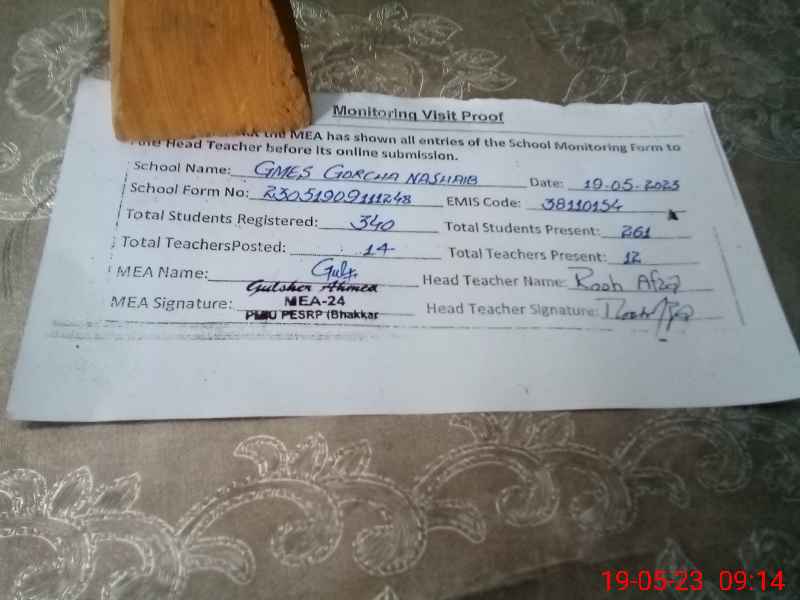 Monitoring Visit Proof
the MEA has shown all entries of the School Monitoring Form to
the Head Teacher before its online submission.
School Name: GMES GORCHA NASHAIB Date: 19-05-2023
School Form No: 23051909111248 EMIS Code: 38110154
Total Students Registered: 340 Total Students Present: 261
Total TeachersPosted: 14 Total Teachers Present: 12
MEA Name: Head Teacher Name: Rooh Afza
Gulsher Ahmed
MEA Signature: MEA-24 Head Teacher Signature:
PMIU PESRP (Bhakkar
19-05-23 09:14